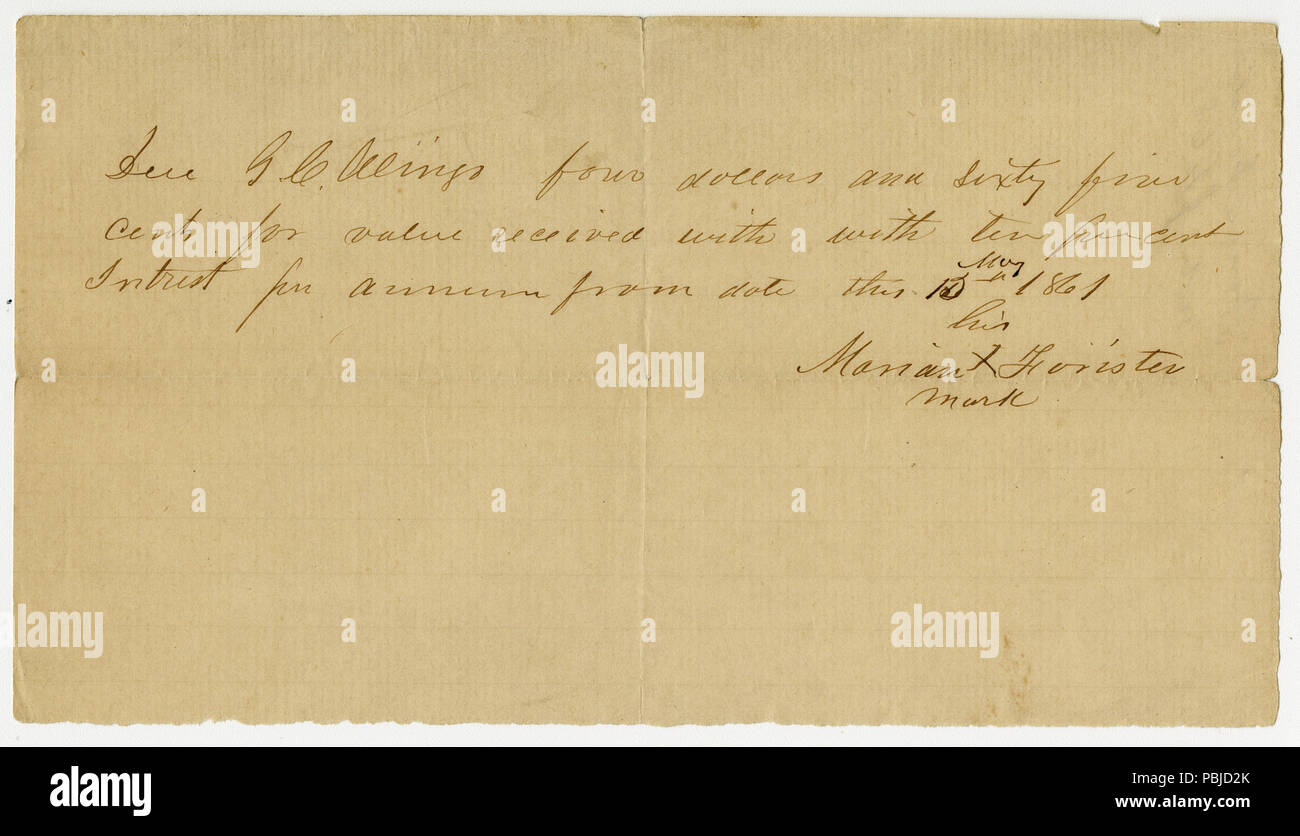 Due G. C. Wings four dollars and sixty five
cents for value received with with ten per cent
Intrest per annum from date this May 1861
his
Marian X Forister
mark
alamy
Image ID: PBJD2K
www.alamy.com